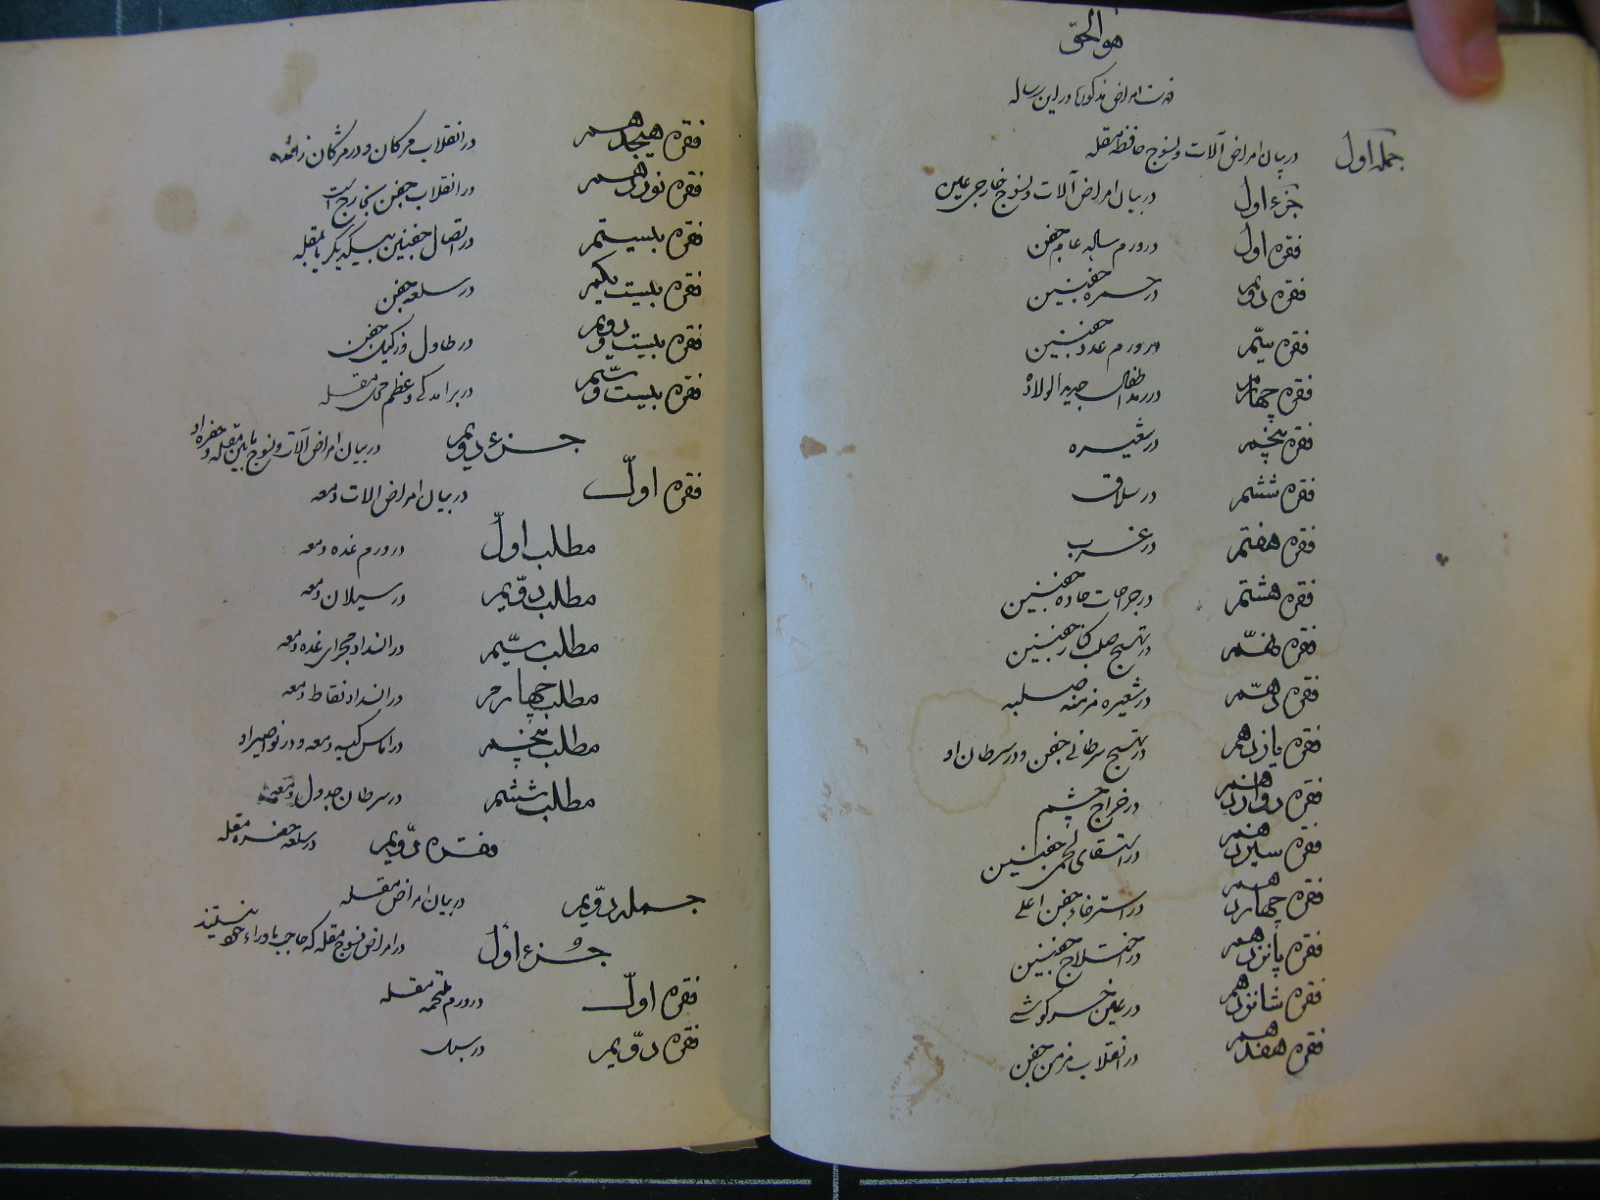 هو الحق
فهرست امراض مذکوره در این رساله
جمله اول در بیان امراض آلات و نسوج حافظه مقله
جزء اول در بیان امراض آلات و نسوج خارجی عین
فقره اول در ورم ساله عام جفن
فقره دویم در حمره جفنین
فقره سیّم در ورم غدد جفنین
فقره چهارم در رمد اطفال جدید الولاده
فقره پنجم در شعیره
فقره ششم در سلاق
فقره هفتم در غرب
فقره هشتم در جراحات حاده جفنین
فقره نهّم در تهیج صلب کنار جفنین
فقره دهّم در شعیره مزمنه صلبه
فقره یازدهم در تهیج سرطانی جفن و در سرطان او
فقره دوازدهم در خراج چشم
فقره سیزدهم در استسقای لحمی جفنین
فقره چهاردهم در استرخاء جفن اعلی
فقره پانزدهم در اختلاج جفنین
فقره شانزدهم در عین خرگوشی
فقره هفدهم در انقلاب مزمن جفن
فقره هیجدهم در انقلاب مژکان و در مژکان زائده
فقره نوزدهم در انقلاب جفن بخارج است
فقره بیستم در اتصال جفنین بیکدیکر یا بمقله
فقره بیست یکیم در سلعه جفن
فقره بیست و دویم در طاول و زکیل جفن
فقره بیست و سیّم در برآمدکی و عظم حجم مقله
جزء دویم در بیان امراض آلات و نسوج مابین مقله و حفره او
فقره اولّ در بیان امراض الات دمعه
مطلب اولّ در ورم غده دمعه
مطلب دوّیم در سیلان دمعه
مطلب سیّم در انسداد مجرای غده دمعه
مطلب چهارم در انسداد نقاط دمعه
مطلب پنجم در اماس کیسه دمعه و در نواصیر او
مطلب ششم در سرطان جدول دمعه
فقره دوّیم در سلعه حفره مقله
جمله دوّیم در بیان امراض مقله
جزء اول در امراض نسوج مقله که حاجب ماوراء خود نیستند
فقره اولّ در ورم ملتحمه مقله
فقره دوّیم در سبل